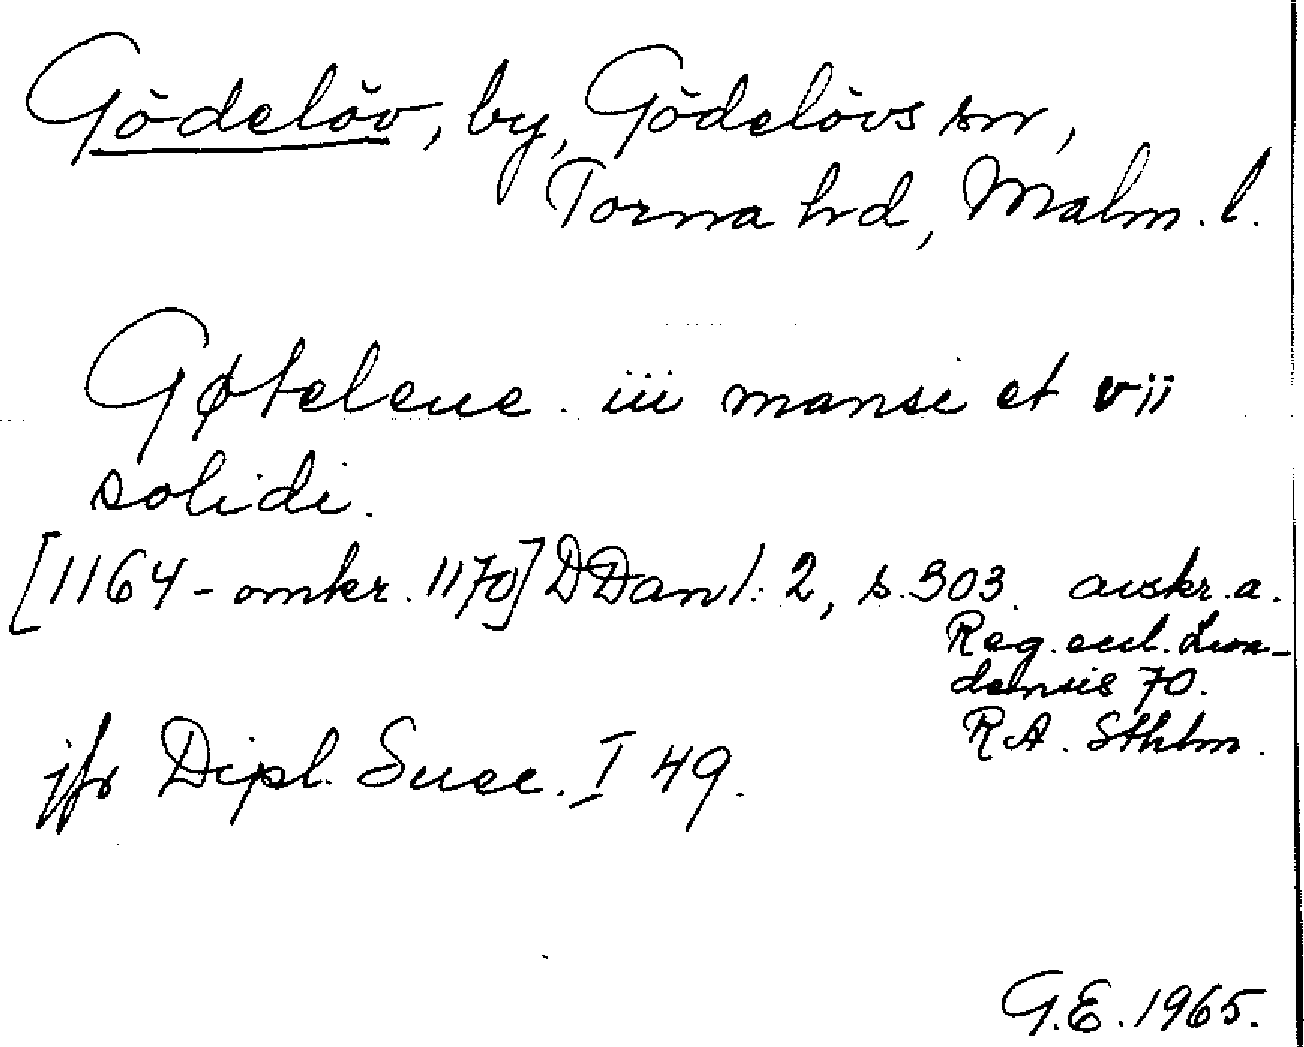 Gödelöv, by, Gödelövs sn,
Torna hd, Malm. l.
Gøteleue. iii mansi et vii
solidi.
[1164-omkr. 1170] DDan I: 2, s. 303. avskr. a.
Reg. eccl. Lun-
densis 70.
RA. Sthlm.
jfr Dipl. Suec. I 49.
G.E. 1965.